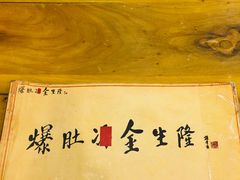 爆肚 金生隆
爆肚 金生隆